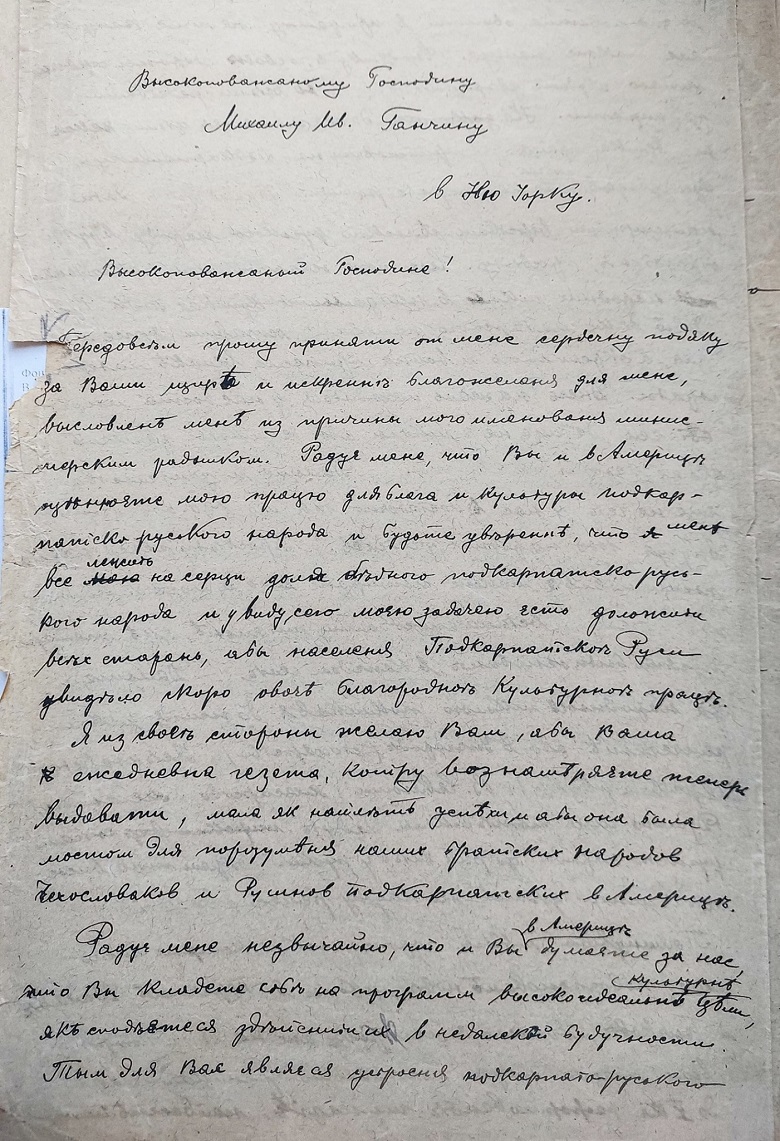 Высокоповансаному Господину
Михаилу Ив. Ганчину
в Ню Іорку.
Высокоповансаный Господине!
Передовсѣм прошу приняти от мене сердечну подяку
за Ваши щирѣ и искреннѣ благожеланя для мене,
высловленѣ менѣ из причины мого именованя минис-
терским радником. Радує мене, что Вы и в Америцѣ
цѣните мою працю для блага и культуры подкар-
патско руського народа и будьте увѣреннѣ, что менѣ
все лежить на серци доля бѣдного подкарпатско русь-
кого народа и у виду сего моею задачею єсть доложити
всѣх старань, абы населеня Подкарпатскоѣ Руси
увидѣло скоро овочѣ благородноѣ культурноѣ працѣ.
Я из своєѣ стороны желаю Вам, абы Ваша
ежедневна газета, котру вознамѣряєте теперь
выдавати, мала як найлѣпѣ успѣхи и абы она была
мостом для порозумѣня наших братских народов
Чехословаков и Русинов подкарпатских в Америцѣ.
Радує мене незвычайно, что и Вы в Америцѣ думаєте за нас,
что Вы кладете собѣ на програм высокоидеальнѣ культурнѣ цѣли,
якѣ сподѣєтеся здѣйснити в недалекой будучности.
Тым для Вас являєся устроєня подкарпато-руського